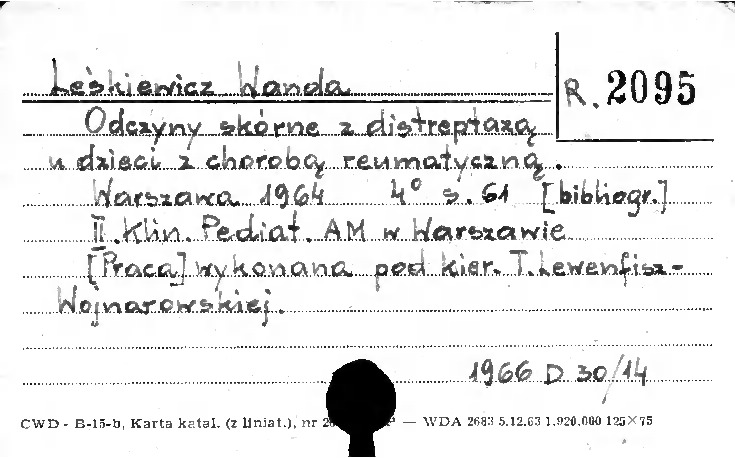 Leśkiewicz Wanda
R. 2095
Odczyny skórne z distreptazą
u dzieci z chorobą reumatyczną.
Warszawa 1964 4° s. 61 [bibliogr.]
II. Klin. Pediat. AM w Warszawie
[Praca] wykonana pod kier. T. Lewenfisz-
Wojnarowskiej.
1966 D 30/14
CWD - B-15-b, Karta katal. (z liniat.), nr — WDA 2683 5.12.63 1.920.000 125×75